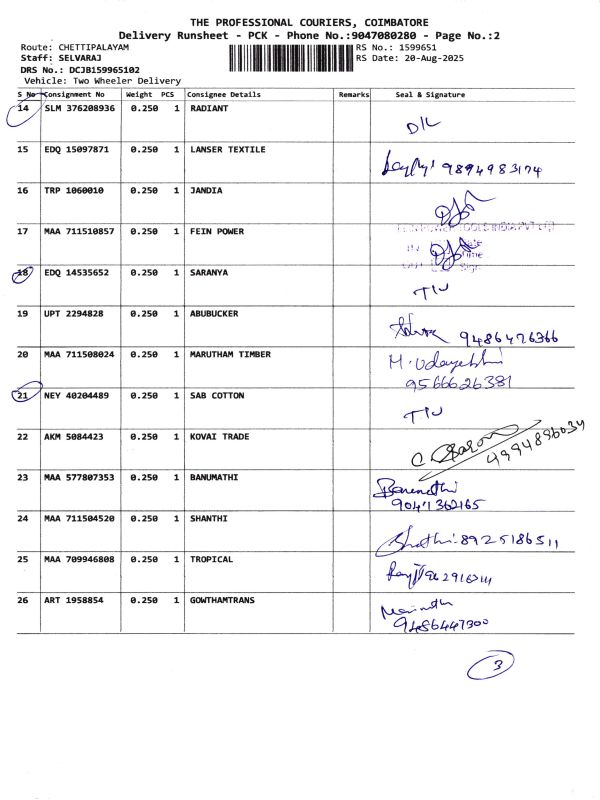 THE PROFESSIONAL COURIERS, COIMBATORE
Delivery Runsheet - PCK - Phone No.:9047080280 - Page No.:2
Route: CHETTIPALAYAM RS No.: 1599651
Staff: SELVARAJ RS Date: 20-Aug-2025
DRS No.: DCJB159965102
Vehicle: Two Wheeler Delivery
S No Consignment No Weight PCS Consignee Details Remarks Seal & Signature
14 SLM 376208936 0.250 1 RADIANT
D/L
15 EDQ 15097871 0.250 1 LANSER TEXTILE
9894983174
16 TRP 1060010 0.250 1 JANDIA
17 MAA 711510857 0.250 1 FEIN POWER
18 EDQ 14535652 0.250 1 SARANYA
19 UPT 2294828 0.250 1 ABUBUCKER
9486476366
20 MAA 711508024 0.250 1 MARUTHAM TIMBER
9566626381
21 NEY 40204489 0.250 1 SAB COTTON
22 AKM 5084423 0.250 1 KOVAI TRADE
4994896034
23 MAA 577807353 0.250 1 BANUMATHI
9047362165
24 MAA 711504520 0.250 1 SHANTHI
8925186511
25 MAA 709946808 0.250 1 TROPICAL
26 ART 1958854 0.250 1 GOWTHAMTRANS
9486447300
3